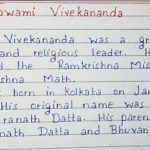 Swami Vivekananda
Vivekananda was a gr
and religious leader. H
d the Ramkrishna Mis
shna Math.
s born in kolkata on Jan
His original name was
ranath Datta. His paren
nath Datta and Bhuvan